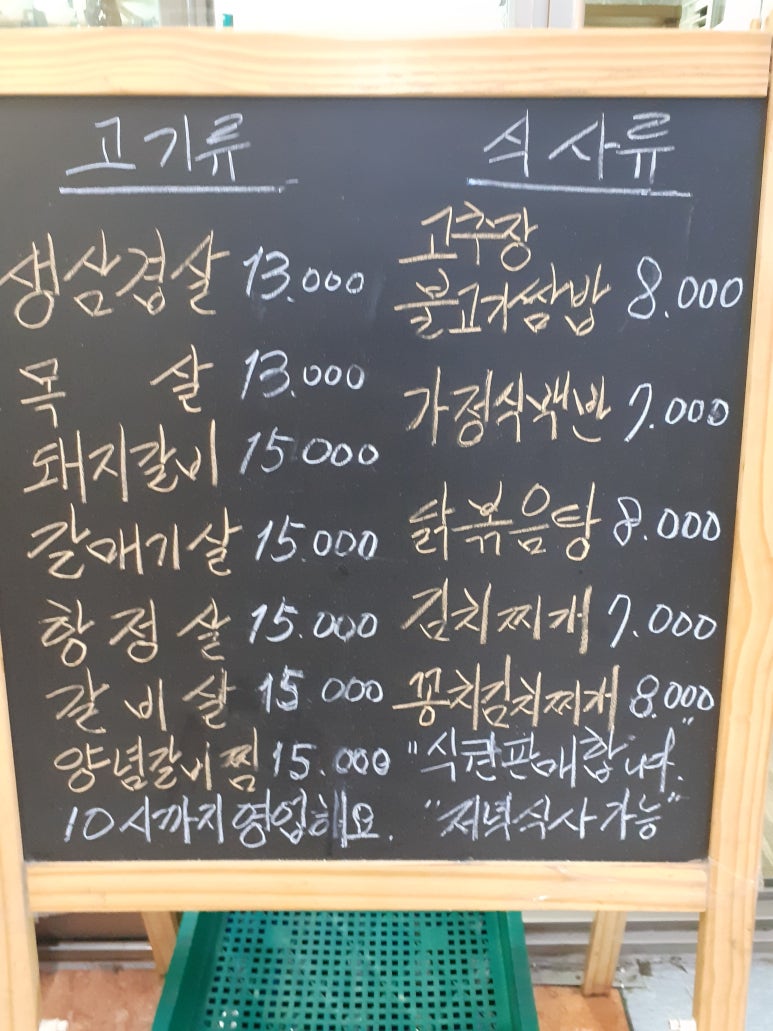 고기류
생삼겹살 13.000
목 살 13.000
돼지갈비 15.000
갈매기살 15.000
항정살 15.000
갈비살 15.000
양념갈비찜 15.000
10시까지영업해요.
식사류
고추장
불고기쌈밥 8.000
가정식백반 7.000
닭볶음탕 8.000
김치찌개 7.000
꽁치김치찌개 8.000
"식권판매합니다."
"저녁식사가능"